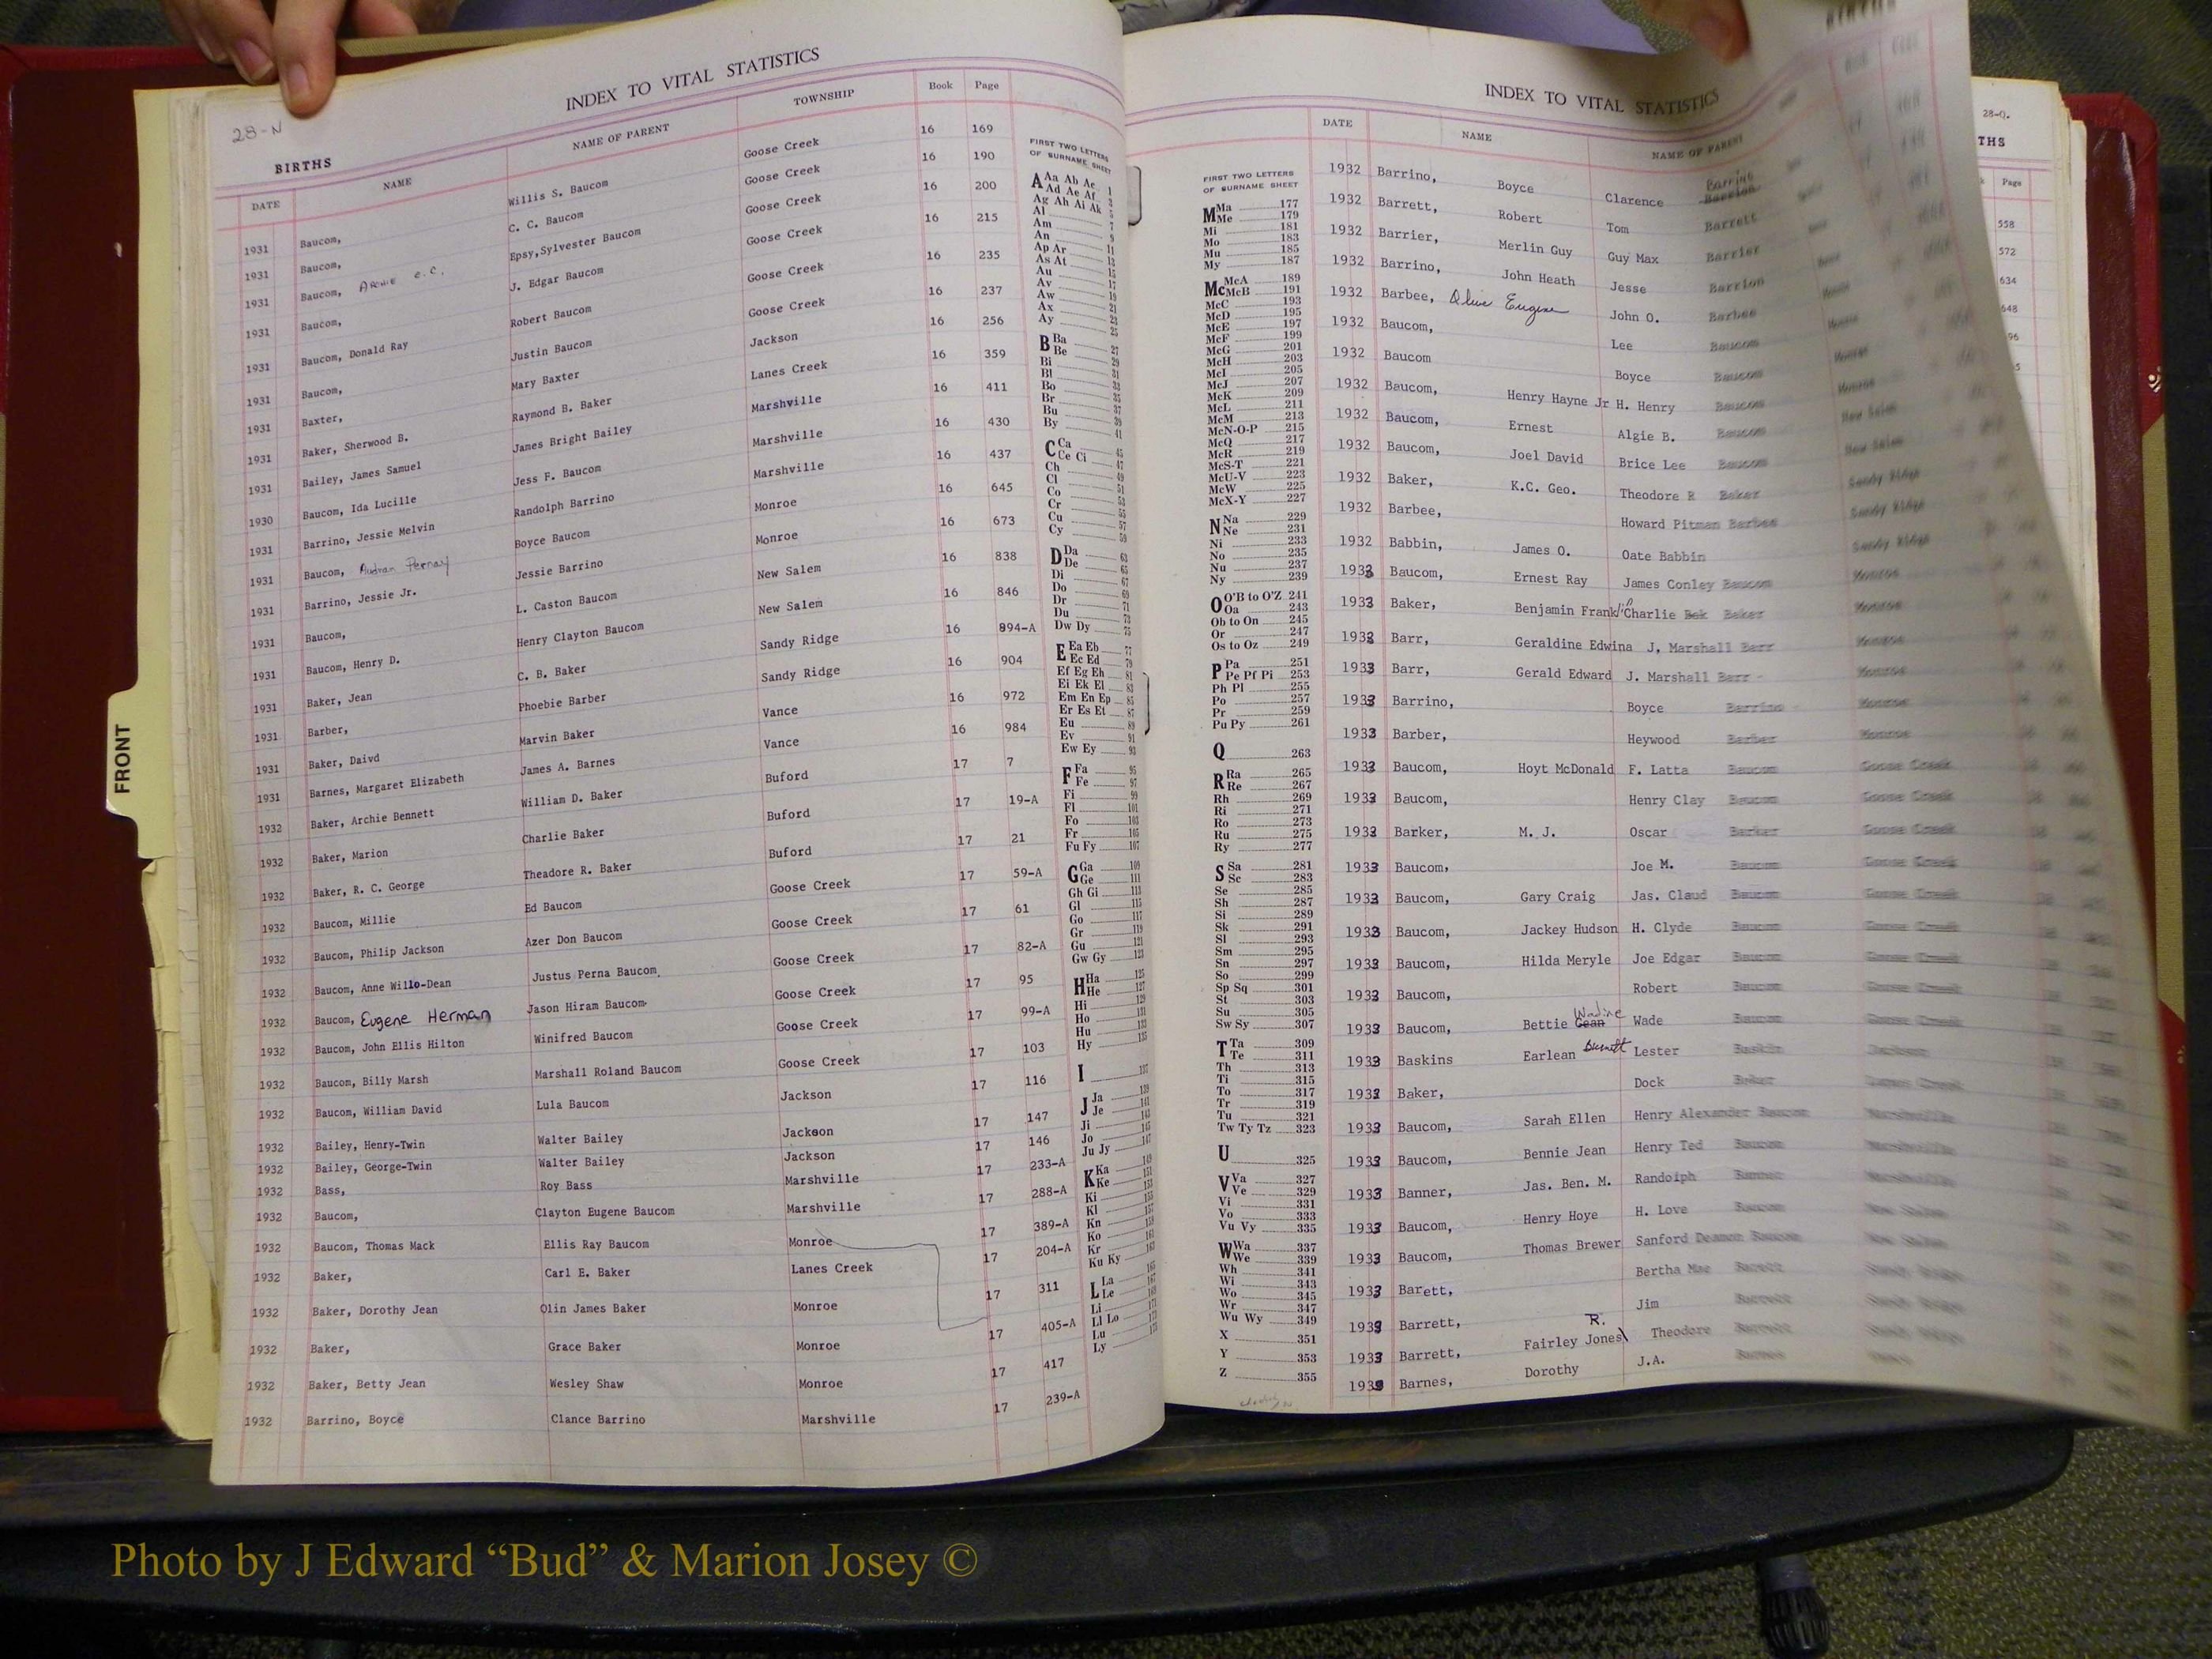 28-N
INDEX TO VITAL STATISTICS
BIRTHS
DATE NAME NAME OF PARENT TOWNSHIP Book Page
1931 Baucom, Willis S. Baucom Goose Creek 16 169
1931 Baucom, C. C. Baucom Goose Creek 16 190
1931 Baucom, Epsy,Sylvester Baucom Goose Creek 16 200
1931 Baucom, J. Edgar Baucom Goose Creek 16 215
1931 Baucom, Donald Ray Robert Baucom Goose Creek 16 235
1931 Baucom, Justin Baucom Goose Creek 16 237
1931 Baxter, Mary Baxter Jackson 16 256
1931 Baker, Sherwood B. Raymond B. Baker Lanes Creek 16 359
1931 Bailey, James Samuel James Bright Bailey Marshville 16 411
1930 Baucom, Ida Lucille Jess F. Baucom Marshville 16 430
1931 Barrino, Jessie Melvin Randolph Barrino Marshville 16 437
1931 Baucom, Boyce Baucom Monroe 16 645
1931 Barrino, Jessie Jr. Jessie Barrino Monroe 16 673
1931 Baucom, L. Caston Baucom New Salem 16 838
1931 Baucom, Henry D. Henry Clayton Baucom New Salem 16 846
1931 Baker, Jean C. B. Baker Sandy Ridge 16 894-A
1931 Barber, Phoebie Barber Sandy Ridge 16 904
1931 Baker, Daivd Marvin Baker Vance 16 972
1931 Barnes, Margaret Elizabeth James A. Barnes Vance 16 984
1932 Baker, Archie Bennett William D. Baker Buford 17 7
1932 Baker, Marion Charlie Baker Buford 17 19-A
1932 Baker, R. C. George Theadore R. Baker Buford 17 21
1932 Baucom, Millie Ed Baucom Goose Creek 17 59-A
1932 Baucom, Philip Jackson Azer Don Baucom Goose Creek 17 61
1932 Baucom, Anne Willo-Dean Justus Perna Baucom Goose Creek 17 82-A
1932 Baucom, Eugene Herman Jason Hiram Baucom Goose Creek 17 95
1932 Baucom, John Ellis Hilton Winifred Baucom Goose Creek 17 99-A
1932 Baucom, Billy Marsh Marshall Roland Baucom Goose Creek 17 103
1932 Baucom, William David Lula Baucom Jackson 17 116
1932 Bailey, Henry-Twin Walter Bailey Jackson 17 147
1932 Bailey, George-Twin Walter Bailey Jackson 17 146
1932 Bass, Roy Bass Marshville 17 233-A
1932 Baucom, Clayton Eugene Baucom Marshville 17 288-A
1932 Baucom, Thomas Mack Ellis Ray Baucom Monroe 17 389-A
1932 Baker, Carl E. Baker Lanes Creek 17 204-A
1932 Baker, Dorothy Jean Olin James Baker Monroe 17 311
1932 Baker, Grace Baker Monroe 17 405-A
1932 Baker, Betty Jean Wesley Shaw Monroe 17 417
1932 Barrino, Boyce Clance Barrino Marshville 17 239-A
FIRST TWO LETTERS
OF SURNAME SHEET
A Aa Ab Ac 1
Ad Ae Af 3
Ag Ah Ai Ak 5
Al 7
Am 9
An 11
Ap Ar 13
As At 15
Au 17
Av 19
Aw 21
Ax 23
Ay 25
B Ba 27
Be 29
Bi 31
Bl 33
Bo 35
Br 37
Bu 39
By 41
C Ca 45
Ce Ci 47
Ch 49
Cl 51
Co 53
Cr 55
Cu 57
Cy 59
D Da 63
De 65
Di 67
Do 69
Dr 71
Du 73
Dw Dy 75
E Ea Eb 77
Ec Ed 79
Ef Eg Eh 81
Ei Ek El 83
Em En Ep 85
Er Es Et 87
Eu 89
Ev 91
Ew Ey 93
F Fa 95
Fe 97
Fi 99
Fl 101
Fo 103
Fr 105
Fu Fy 107
G Ga 109
Ge 111
Gh Gi 113
Gl 115
Go 117
Gr 119
Gu 121
Gw Gy 123
H Ha 125
He 127
Hi 129
Ho 131
Hu 133
Hy 135
I 137
J Ja 139
Je 141
Ji 143
Jo 145
Ju Jy 147
K Ka 149
Ke 151
Ki 153
Kl 155
Kn
Ko
Kr
Ku Ky
L La 165
Le 167
Li
Ll Lo
Lu
Ly
FRONT
INDEX TO VITAL STATISTICS
FIRST TWO LETTERS
OF SURNAME SHEET
M Ma 177
Me 179
Mi 181
Mo 183
Mu 185
My 187
Mc McA 189
McB 191
McC 193
McD 195
McE 197
McF 199
McG 201
McH 203
McI 205
McJ 207
McK 209
McL 211
McM 213
McN-O-P 215
McQ 217
McR 219
McS-T 221
McU-V 223
McW 225
McX-Y 227
N Na 229
Ne 231
Ni 233
No 235
Nu 237
Ny 239
O O'B to O'Z 241
Oa 243
Ob to On 245
Or 247
Os to Oz 249
P Pa 251
Pe Pf Pi 253
Ph Pl 255
Po 257
Pr 259
Pu Py 261
Q 263
R Ra 265
Re 267
Rh 269
Ri 271
Ro 273
Ru 275
Ry 277
S Sa 281
Sc 283
Se 285
Sh 287
Si 289
Sk 291
Sl 293
Sm 295
Sn 297
So 299
Sp Sq 301
St 303
Su 305
Sw Sy 307
T Ta 309
Te 311
Th 313
Ti 315
To 317
Tr 319
Tu 321
Tw Ty Tz 323
U 325
V Va 327
Ve 329
Vi 331
Vo 333
Vu Vy 335
W Wa 337
We 339
Wh 341
Wi 343
Wo 345
Wr 347
Wu Wy 349
X 351
Y 353
Z 355
DATE NAME NAME OF PARENT
1932 Barrino, Boyce Clarence Barrino
1932 Barrett, Robert Tom Barrett
1932 Barrier, Merlin Guy Guy Max Barrier
1932 Barrino, John Heath Jesse Barrion
1932 Barbee, Olive Eugene John O. Barbee Monroe
1932 Baucom, Lee Baucom Monroe
1932 Baucom Boyce Baucom Monroe
1932 Baucom, Henry Hayne Jr H. Henry Baucom New Salem
1932 Baucom, Ernest Algie B. Baucom New Salem
1932 Baucom, Joel David Brice Lee Baucom Sandy Ridge
1932 Baker, K.C. Geo. Theodore R Baker Sandy Ridge
1932 Barbee, Howard Pitman Barbee Sandy Ridge
1932 Babbin, James O. Oate Babbin Monroe
1933 Baucom, Ernest Ray James Conley Baucom Monroe
1933 Baker, Benjamin Franklin Charlie Bek Baker Monroe
1933 Barr, Geraldine Edwina J. Marshall Barr Monroe
1933 Barr, Gerald Edward J. Marshall Barr Monroe
1933 Barrino, Boyce Barrino Monroe
1933 Barber, Heywood Barber
1933 Baucom, Hoyt McDonald F. Latta Baucom Goose Creek
1933 Baucom, Henry Clay Baucom Goose Creek
1933 Barker, M. J. Oscar Barker Goose Creek
1933 Baucom, Joe M. Baucom Goose Creek
1933 Baucom, Gary Craig Jas. Claud Baucom Goose Creek
1933 Baucom, Jackey Hudson H. Clyde Baucom Goose Creek
1933 Baucom, Hilda Meryle Joe Edgar Baucom Goose Creek
1933 Baucom, Robert Baucom Goose Creek
1933 Baucom, Bettie Gean Wadine Wade Baucom Goose Creek
1933 Baskins Earlean Lester Baskin Jackson
1933 Baker, Dock Baker Lanes Creek
1933 Baucom, Sarah Ellen Henry Alexander Baucom Marshville
1933 Baucom, Bennie Jean Henry Ted Baucom Marshville
1933 Banner, Jas. Ben. M. Randolph Banner Marshville
1933 Baucom, Henry Hoye H. Love Baucom New Salem
1933 Baucom, Thomas Brewer Sanford Deamon Baucom New Salem
1933 Barett, Bertha Mae Barett Sandy Ridge
1933 Barrett, Jim Barrett Sandy Ridge
1933 Barrett, Fairley Jones R. Theodore Barrett Sandy Ridge
Barnes, Dorothy J.A. Barnes
28-Q.
THS
Page
558
572
634
648
Photo by J Edward “Bud” & Marion Josey ©